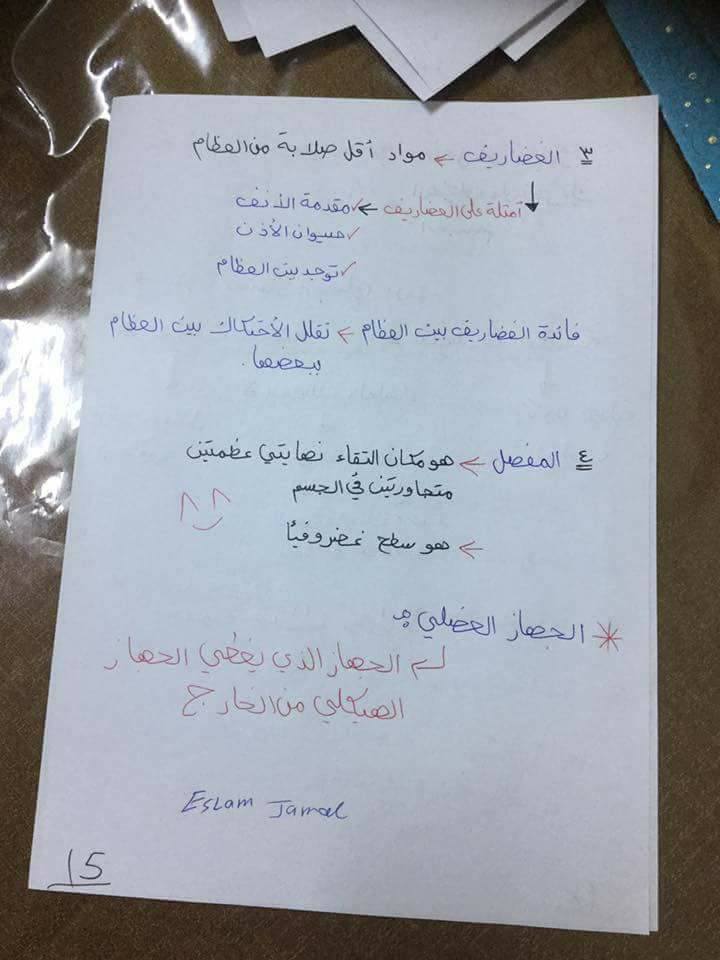 ٣ الغضاريف ← مواد أقل صلابة من العظام
أمثلة على الغضاريف ← ✓ مقدمة الأنف
✓ صيوان الأذن
✓ توجد بين العظام
فائدة الغضاريف بين العظام ← تقلل الأحتكاك بين العظام
ببعضها.
٤ المفصل ← هو مكان التقاء نهايتي عظمتين
متجاورتين في الجسم
← هو سطح غضروفيًا
* الجهاز العضلي :
الجهاز الذي يغطي الجهاز
الهيكلي من الخارج
Eslam Jamal
15